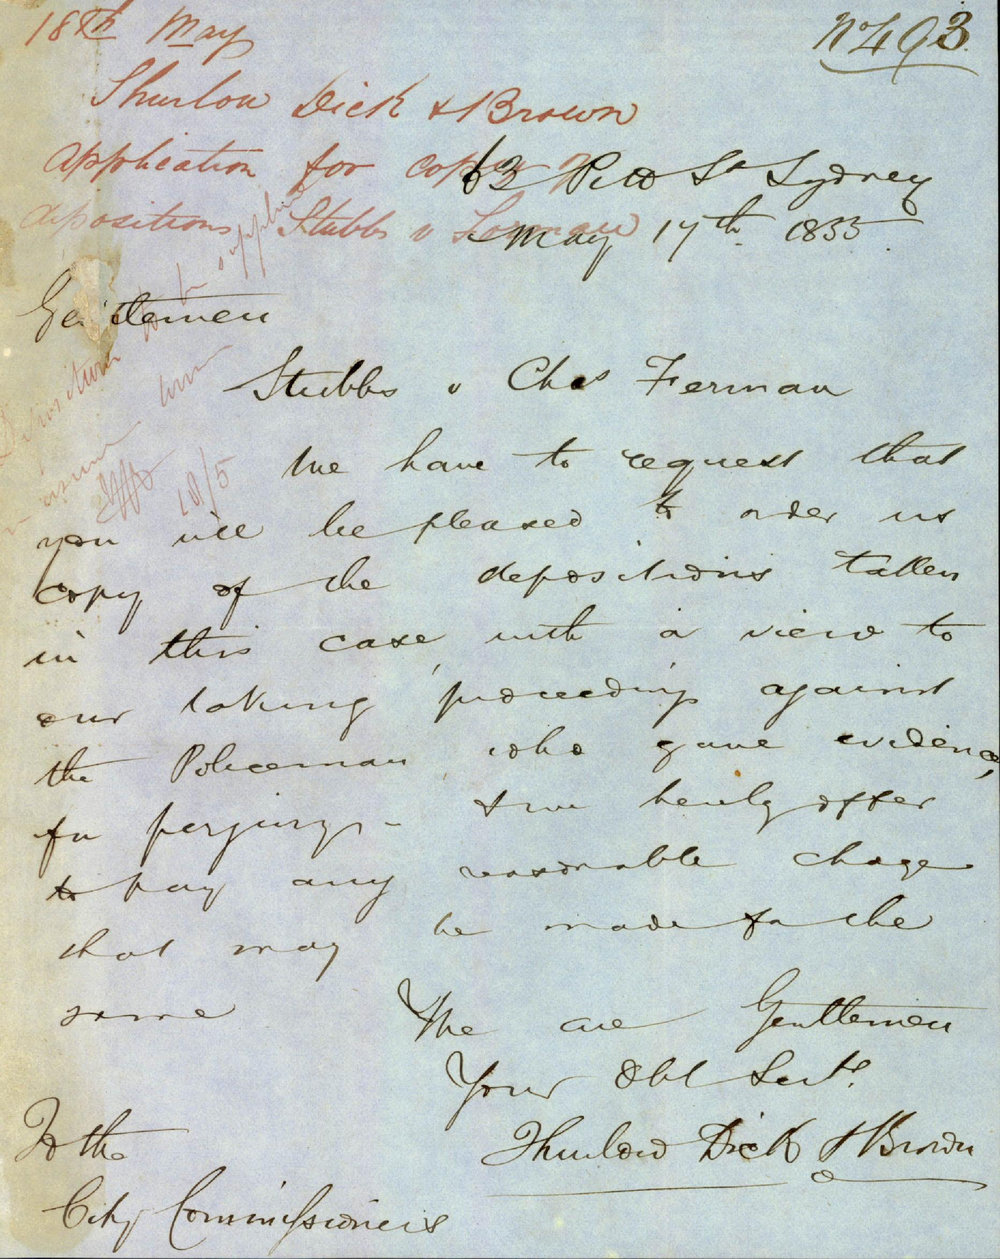 18th May
No 493
Thurlow Dick & Brown
Application for copy of
depositions Stubbs v
62 Pitt St Sydney
May 17th 1855
Gentlemen
Stubbs v Chas Ferman
We have to request that
you will be pleased to order us
copy of the depositions taken
in this case, with a view to
our taking proceedings against
the Policeman who gave evidence,
for perjury - & we hereby offer
to pay any reasonable charge
that may be made for the
same
We are Gentlemen
Your Obt Servts
Thurlow Dick & Brown
To the
City Commissioners
Depositions to be supplied
18/5